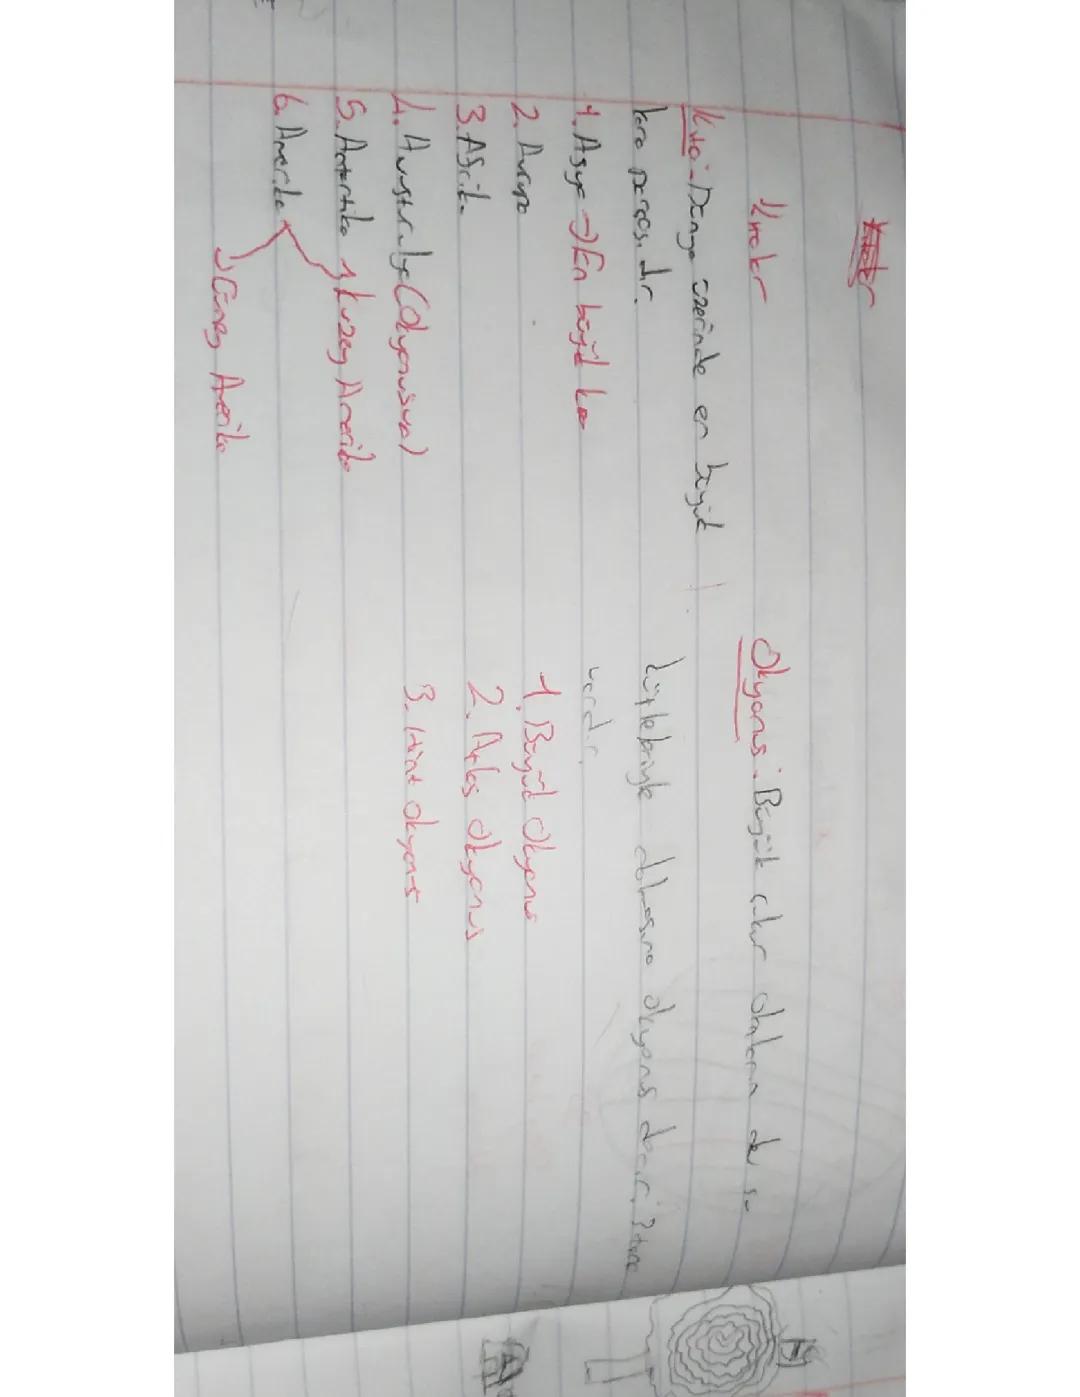 Kıtalar
Kıta: Dünya üzerinde en büyük
kara parçasıdır.
1. Asya → En büyük kara
2. Avrupa
3. Afrika
4. Avustralya (Okyanusya)
5. Antartika
6. Amerika
→ Kuzey Amerika
→ Güney Amerika
Okyanus: Büyük çukur alanların da su
kütleleriyle dolmasına okyanus denir. 3 tane
vardır.
1. Büyük Okyanus
2. Atlas Okyanus
3. Hint Okyanus